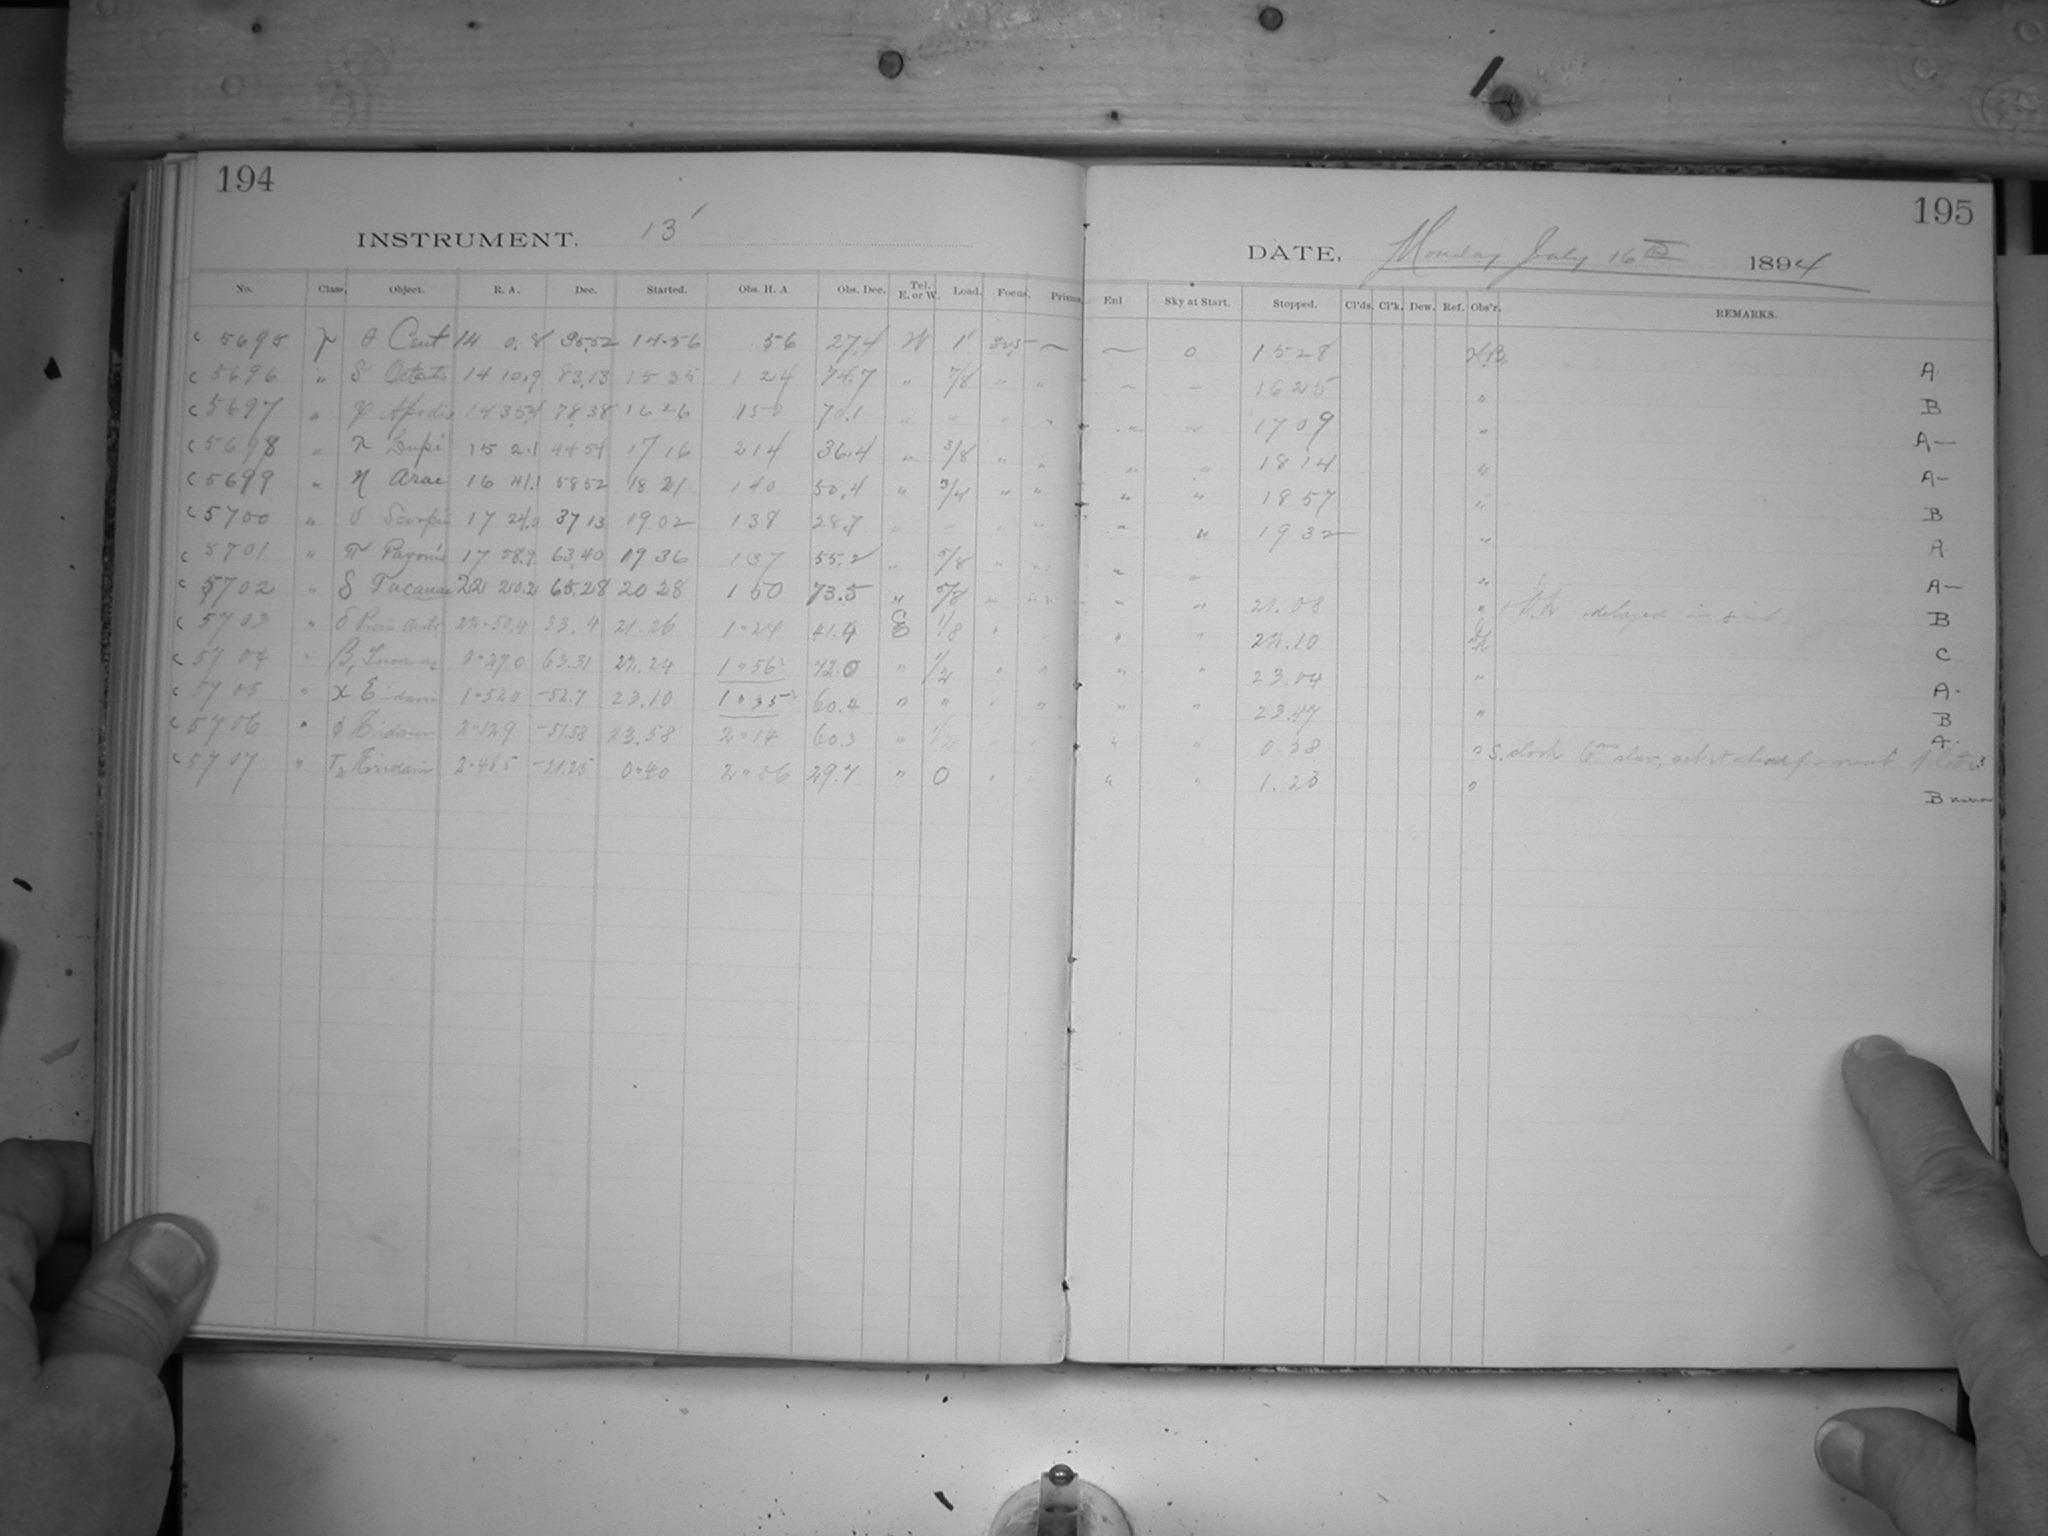 194
INSTRUMENT. 13'
No. Class. Object. R. A. Dec. Started. Obs. H. A. Obs. Dec. Tel. E. or W. Load. Focus. Prisms.
c 5695 θ Cent 14 0.8 35.52 14.56 56 27.4 W 1'
c 5696 " δ Octantis 14 10.9 83.13 15 35 1 24 74.7 " 7/8 " "
c 5697 " Apodis 14 35.4 78.38 16 26 1 50 70.1 " " " "
c 5698 " π Lupi 15 2.1 44 54 17 16 2 14 36.4 " 3/8 " "
c 5699 " η Arae 16 41.1 58 52 18 21 1 40 50.4 " 3/4 " "
c 5700 " υ Scorpii 17 24.0 37 13 19 02 1 38 28.7 " " " "
c 5701 " π Pavonis 17 58.9 63.40 19 36 1 37 55.2 " 5/8 " "
c 5702 " δ Tucanae 22 20.2 65.28 20 28 1 50 73.5 " 5/8 " "
c 5703 " δ 22 50.4 33.4 21.26 1 24 41.4 E 1/8 " "
c 5704 " β, Tucanae 0 27.0 63.31 22.24 1 56 72.0 " 1/2 " "
c 5705 " χ Eridani 1 52.0 -52.7 23.10 1 35 60.4 " " " "
c 5706 " φ Eridani 2 12.9 -51.58 23.58 2 14 60.3 " 1/2 " "
c 5707 " T2 Eridani 2 46.5 -21.25 0 40 2 06 29.7 " 0 " "
195
DATE, Monday July 16th 1894
Enl Sky at Start. Stopped. Cl'ds. Cl'k. Dew. Ref. Obs'r. REMARKS.
0 15 28 A
16 25 " B
" " 17 09 " A—
" " 18 14 " A-
" " 18 57 " B
" " 19 32 " A
" " " A—
" " 21.08 " delayed in B
" " 22.10 C
" " 23.04 " A-
" " 23.47 " B
" " 0.38 " S. clock 6 slow, set ahead for next A-
" " 1.23 " B